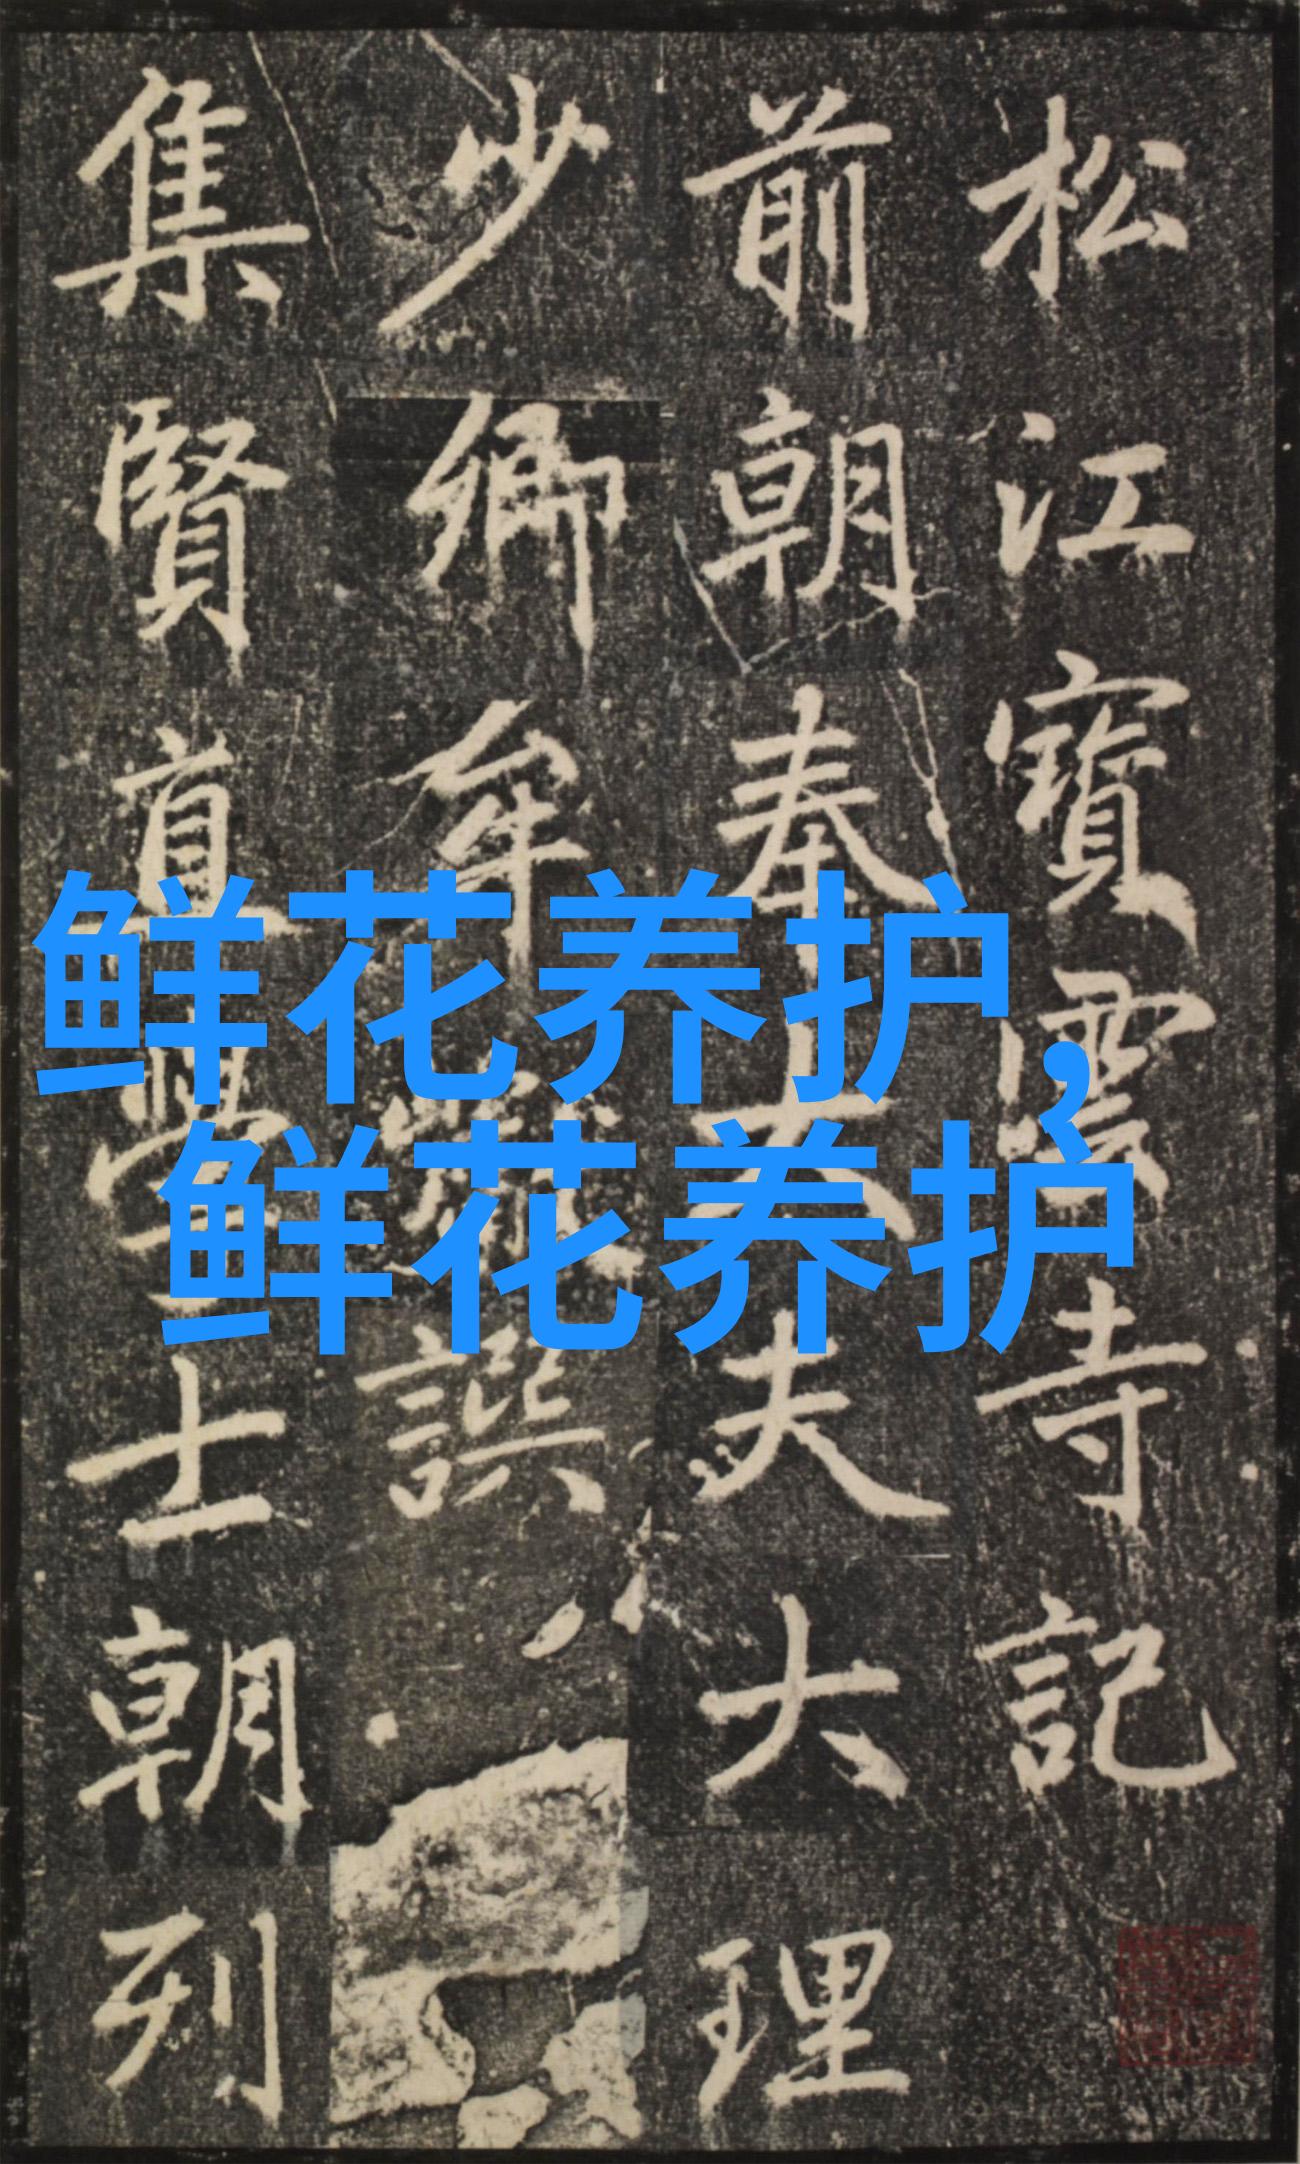 松江寶雲寺記
前朝奉大夫大理
少卿牟譔
集賢直學士朝列
鲜花养护,
鲜花养护